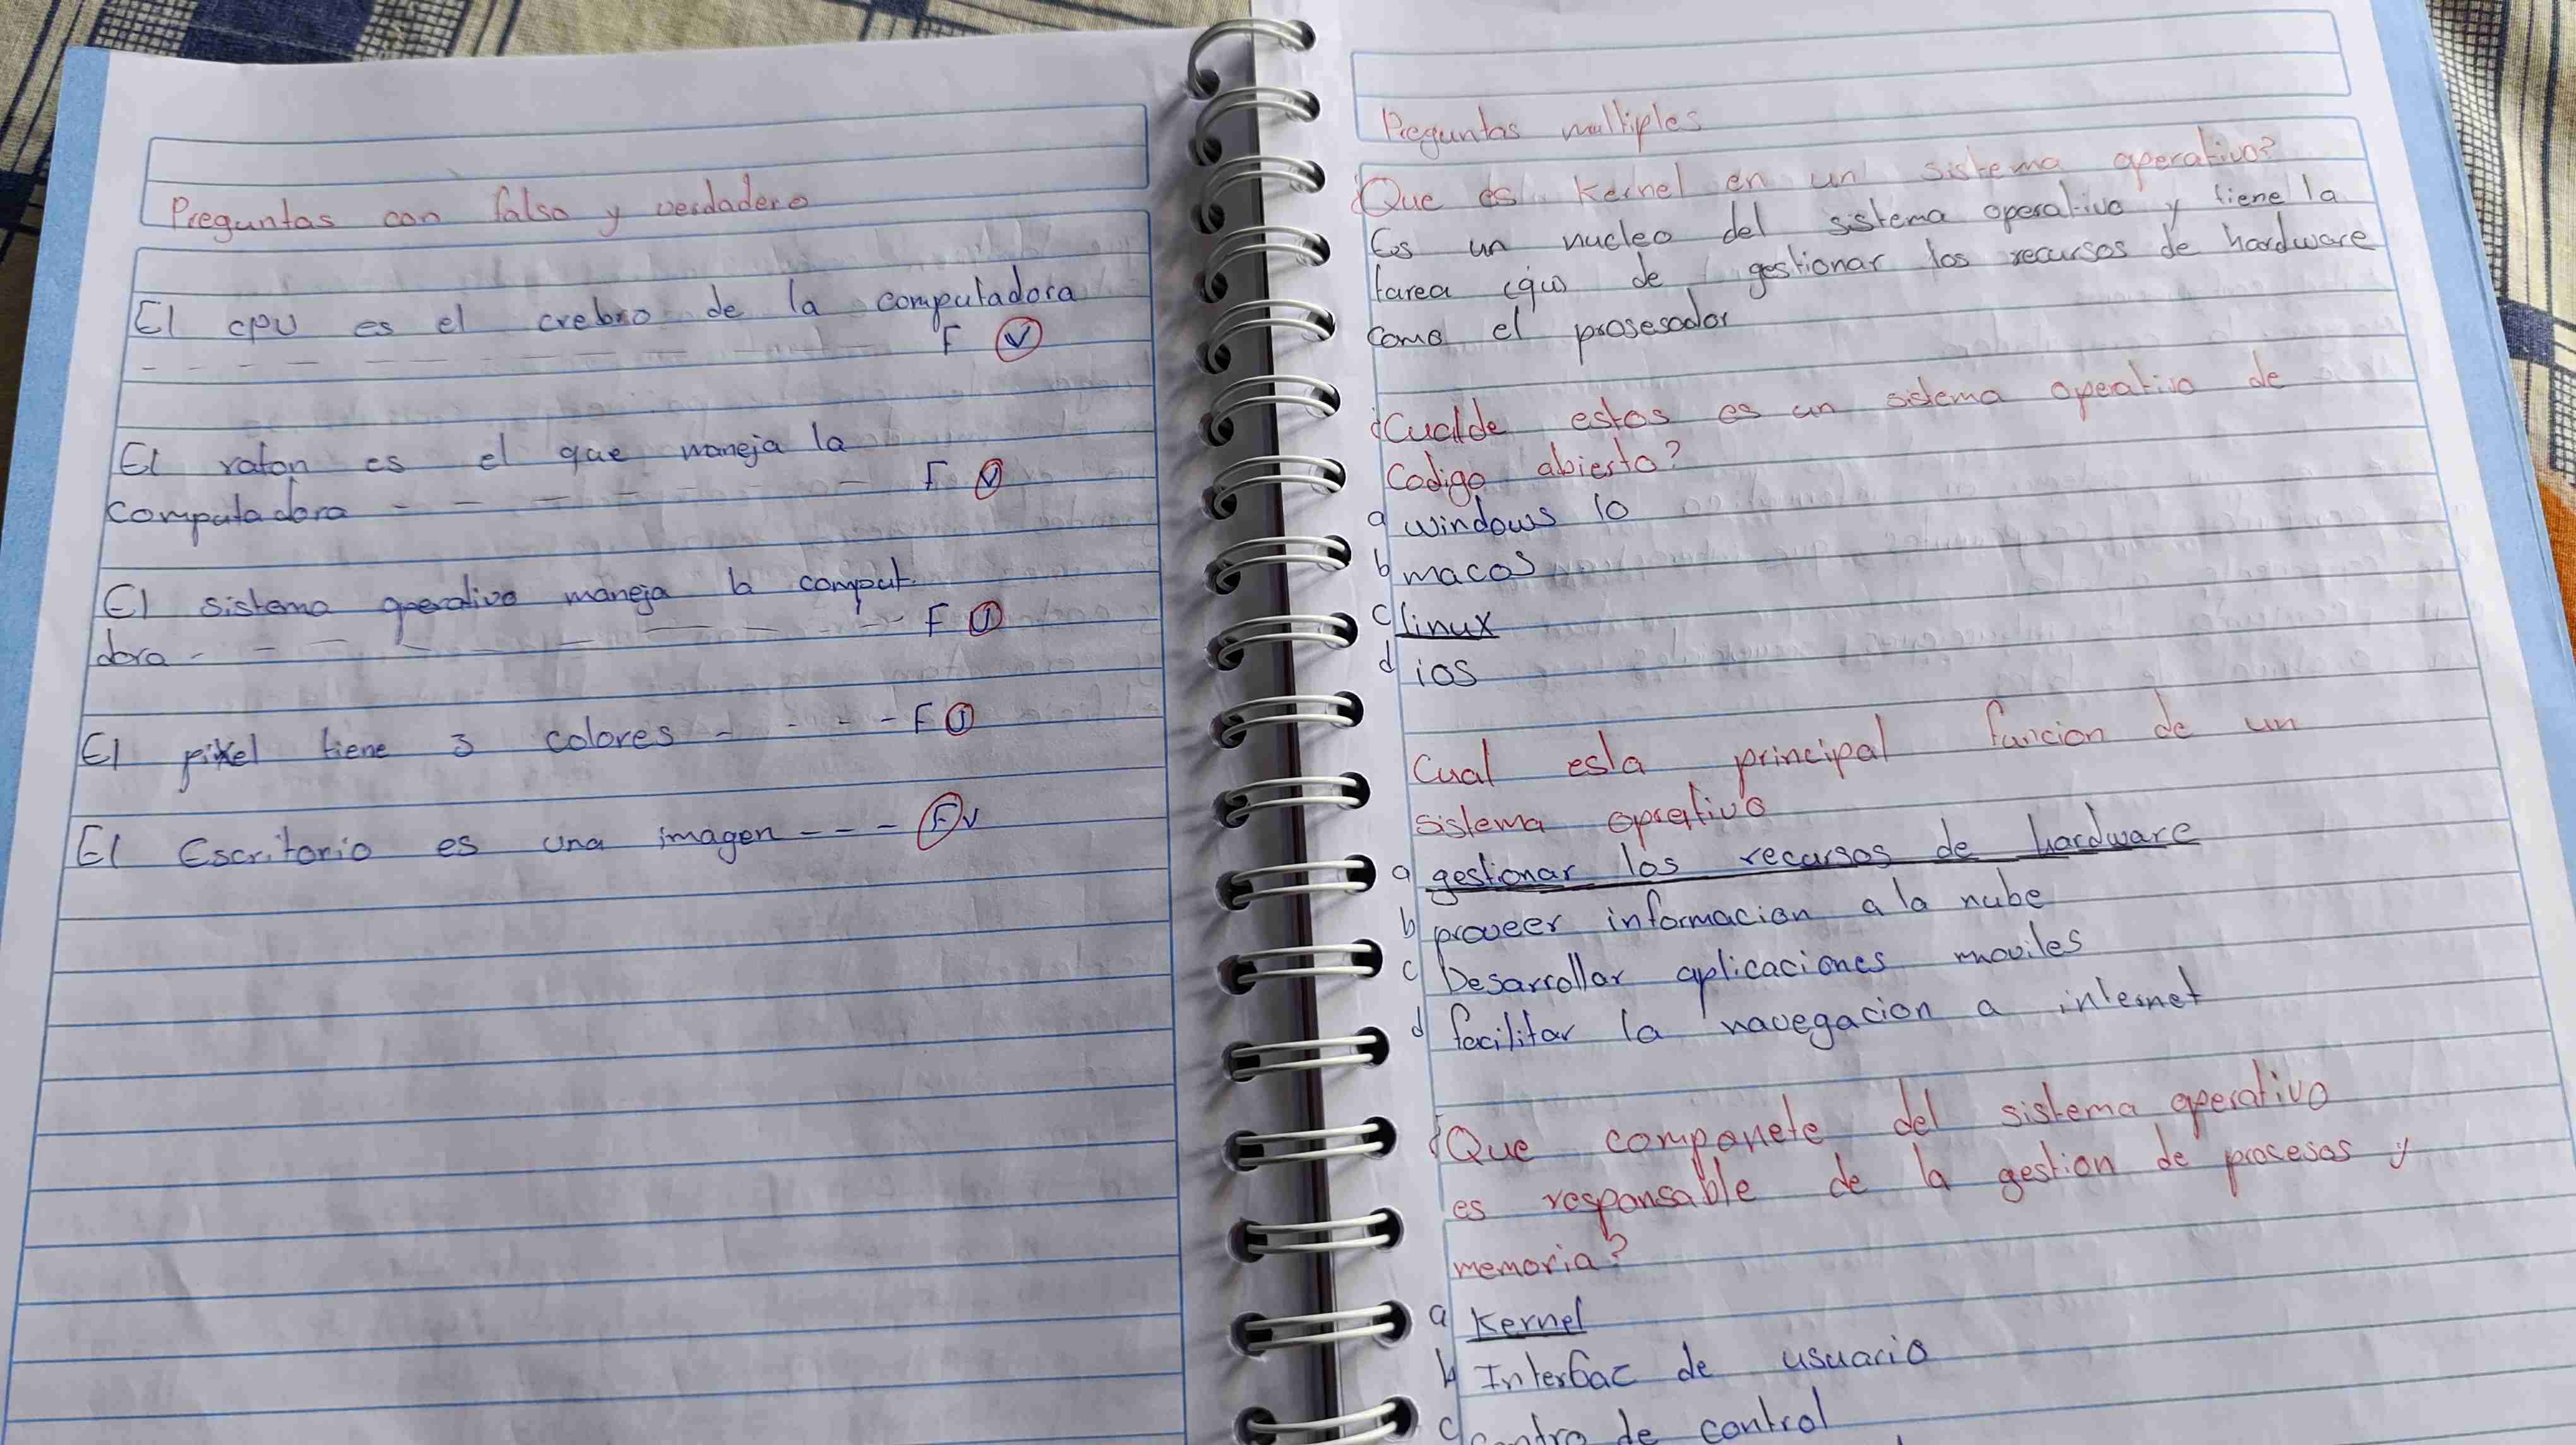 Preguntas con falso y verdadero
El cpu es el crebro de la computadora
- - - - - - - - - - - - - - F V
El raton es el que maneja la
computadora - - - - - - - - - F V
El sistema operativo maneja la comput
dora - - - - - - - - - - - F V
El pixel tiene 3 colores - - - - - F V
El Escritorio es una imagen - - - F V
Preguntas multiples
¿Que es kernel en un sistema operativo?
Es un nucleo del sistema operativo y tiene la
tarea de gestionar los recursos de hardware
como el prosesador
¿Cual de estos es un sistema operativo de
Codigo abierto?
a windows 10
b macos
c linux
d ios
Cual es la principal funcion de un
sistema oprativo
a gestionar los recursos de hardware
b proveer informacion a la nube
c Desarrollar aplicaciones moviles
d facilitar la navegacion a internet
¿Que componete del sistema operativo
es responsable de la gestion de procesos y
memoria?
a Kernel
b Interfac de usuario
c de control